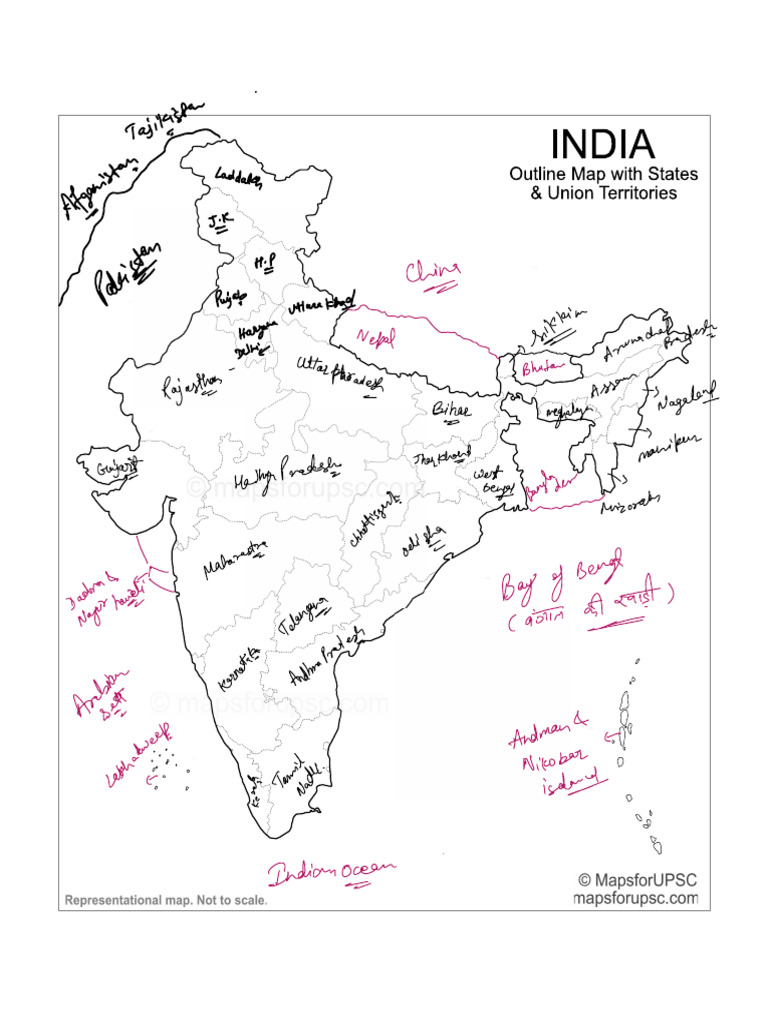 Tajikistan
Afganistan
Pakistan
INDIA
Outline Map with States
& Union Territories
Laddakh
J.K
H.P
China
Punjab
Uttarakhand
Haryana
Delhi
Nepal
Sikkim
Bhutan
Arunachal
Pradesh
Rajasthan
Uttar Pradesh
Assam
Nagaland
Bihar
Meghalya
Manipur
Gujarat
Madhya Pradesh
Jharkhand
West
Bengal
Bangla
desh
Mizoram
Chhattisgarh
Odisha
© mapsforupsc.com
Maharastra
Dadra &
Nagar haveli
Bay of Bengal
(बंगाल की खाड़ी)
Telengana
Karnatika
Andhra Pradesh
Arabian
© mapsforupsc.com
Lakhadweep
Andman &
Nikobar
island
Kerala
Tamil
Nadu
Indian ocean
© MapsforUPSC
Representational map. Not to scale.
mapsforupsc.com